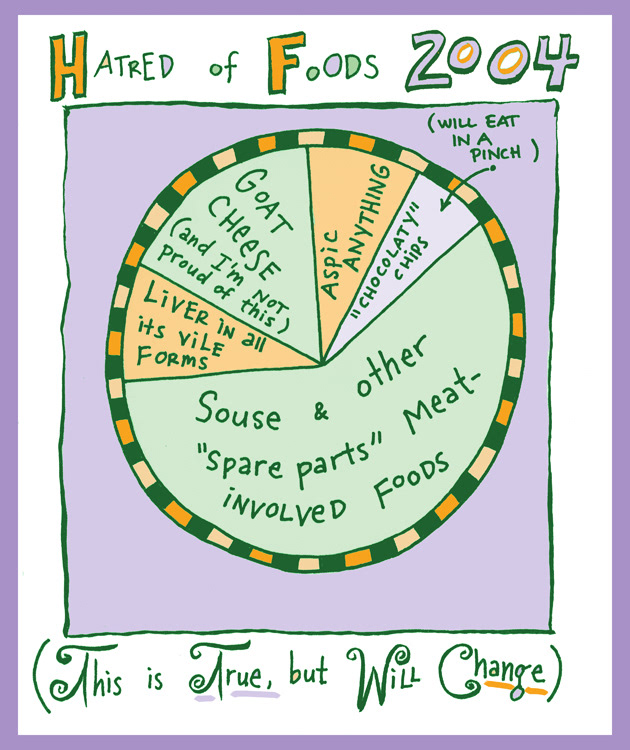 HATRED of FOODS 2004
(WILL EAT
IN A
PINCH)
GOAT
CHEESE
(and I'm NOT
proud of this)
ASPIC
ANYTHING
"CHOCOLATY"
CHIPS
LIVER in all
its ViLE
FORMS
Souse & other
"spare parts" Meat-
iNVOLVED FOODS
(This is True, but Will Change)